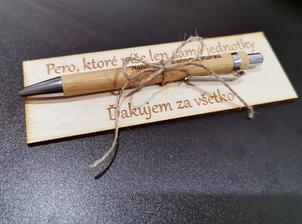 Pero, ktoré píše len samé jednotky
Ďakujem za všetko